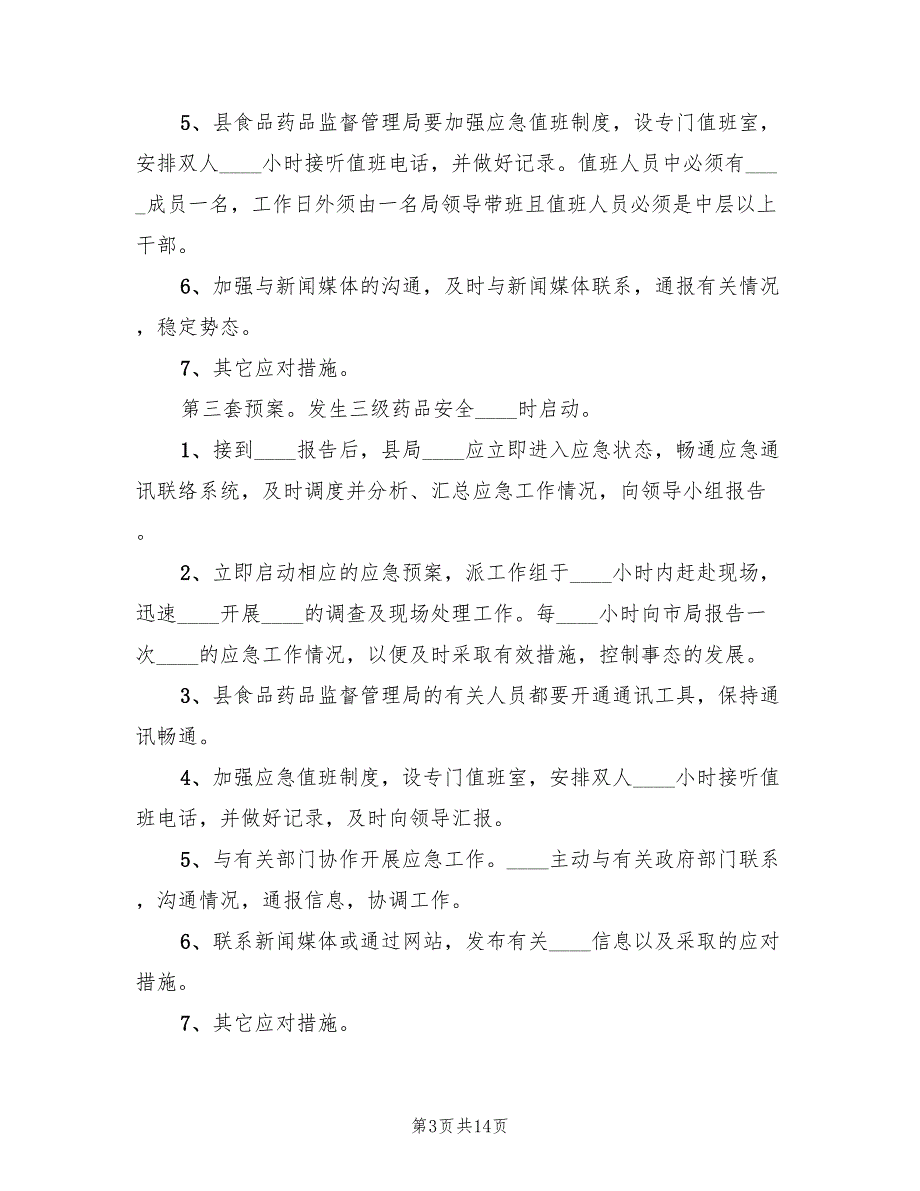 5、县食品药品监督管理局要加强应急值班制度，设专门值班室，
安排双人____小时接听值班电话，并做好记录。值班人员中必须有___
_成员一名，工作日外须由一名局领导带班且值班人员必须是中层以上
干部。
6、加强与新闻媒体的沟通，及时与新闻媒体联系，通报有关情况
，稳定势态。
7、其它应对措施。
第三套预案。发生三级药品安全____时启动。
1、接到____报告后，县局____应立即进入应急状态，畅通应急通
讯联络系统，及时调度并分析、汇总应急工作情况，向领导小组报告
。
2、立即启动相应的应急预案，派工作组于____小时内赶赴现场，
迅速____开展____的调查及现场处理工作。每____小时向市局报告一
次____的应急工作情况，以便及时采取有效措施，控制事态的发展。
3、县食品药品监督管理局的有关人员都要开通通讯工具，保持通
讯畅通。
4、加强应急值班制度，设专门值班室，安排双人____小时接听值
班电话，并做好记录，及时向领导汇报。
5、与有关部门协作开展应急工作。____主动与有关政府部门联系
，沟通情况，通报信息，协调工作。
6、联系新闻媒体或通过网站，发布有关____信息以及采取的应对
措施。
7、其它应对措施。
第3页共14页